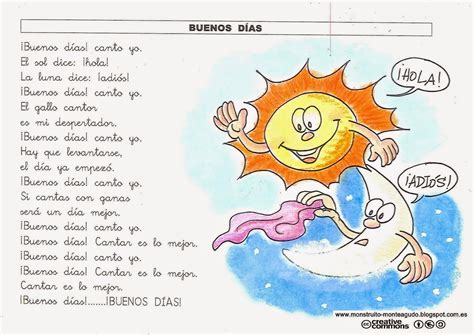 BUENOS DÍAS
¡Buenos días! canto yo.
El sol dice: ¡hola!
La luna dice: ¡adiós!
¡Buenos días! canto yo.
El gallo cantor
es mi despertador.
¡Buenos días! canto yo.
Hay que levantarse,
el día ya empezó.
¡Buenos días! canto yo.
Si cantas con ganas
será un día mejor.
¡Buenos días! canto yo.
¡Buenos días! Cantar es lo mejor.
¡Buenos días! canto yo.
¡Buenos días! Cantar es lo mejor.
Cantar es lo mejor.
¡Buenos días!.......¡BUENOS DÍAS!
¡HOLA!
¡ADIÓS!
www.monstruito-monteagudo.blogspot.com.es
creative
commons